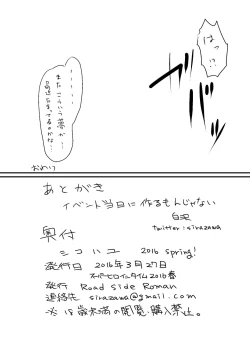 はっ!?
・・・・・
またこういう夢か…
最近たまってるのかな…
おわり
あとがき
イベント当日に作るもんじゃない
白沢
twitter:sirazawa
奥付
シコハユ 2016 spring!
発行日 2016年3月27日
スーパーヒロインタイム2016春
発行 Road side Roman
連絡先 sirazawa@gmail.com
※18歳未満の閲覧・購入禁止。